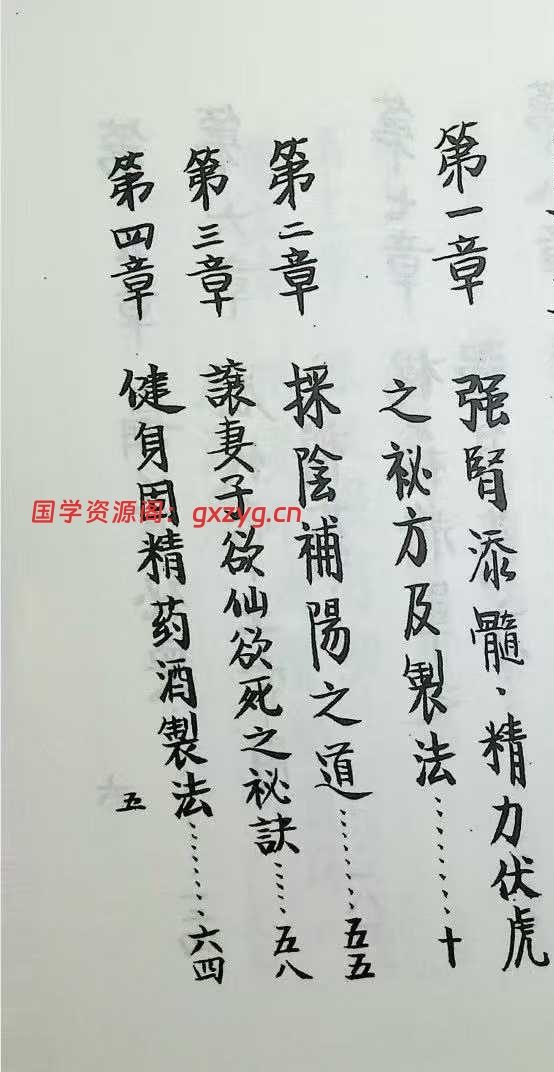 第一章 强腎添髓、精力伏虎
之祕方及製法………十
第二章 採陰補陽之道………五五
第三章 讓妻子欲仙欲死之祕訣……五八
第四章 健身固精药酒製法………六四
五
国学资源阁:gxzyg.cn